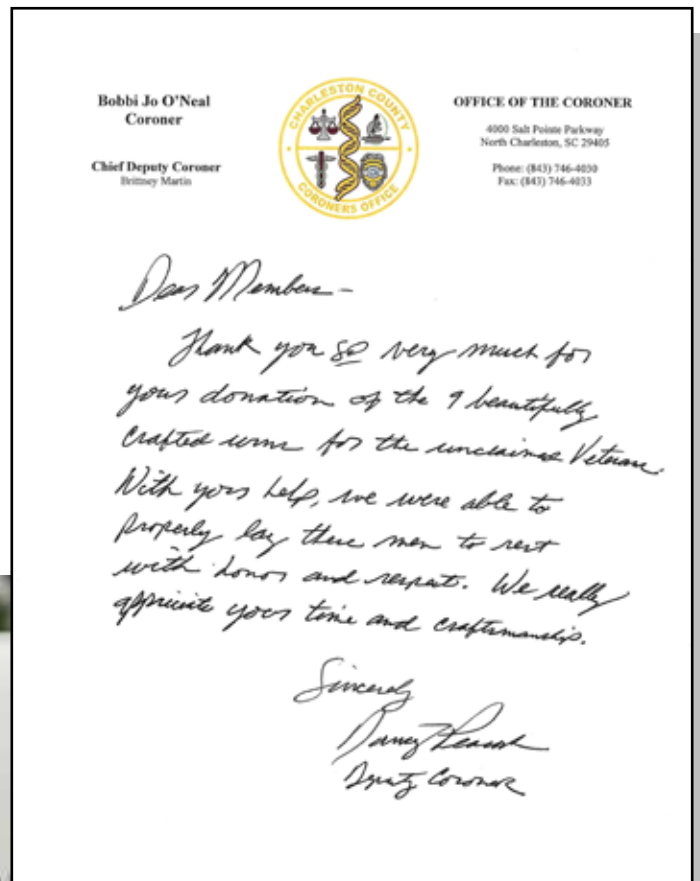 Bobbi Jo O'Neal
Coroner
Chief Deputy Coroner
Brittney Martin
CHARLESTON COUNTY
CORONERS OFFICE
OFFICE OF THE CORONER
4000 Salt Pointe Parkway
North Charleston, SC 29405
Phone: (843) 746-4030
Fax: (843) 746-4033
Dear Members -
Thank you so very much for
your donation of the 9 beautifully
crafted urns for the unclaimed Veterans.
With your help, we were able to
properly lay these men to rest
with honor and respect. We really
appriciate your time and craftsmanship.
Sincerely
Deputy Coroner